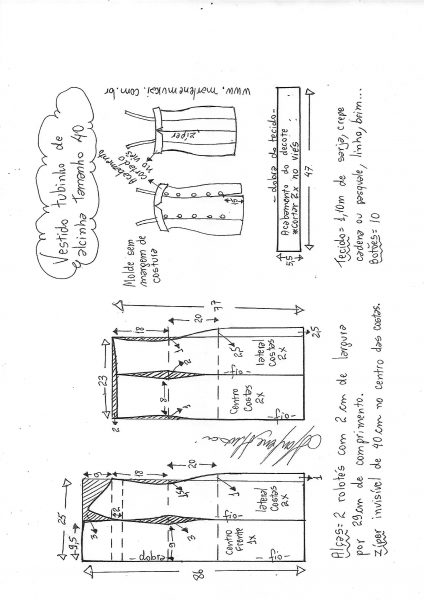 Vestido tubinho de
alcinha Tamanho 40
www.marlenemukai.com.br
Molde sem
margem de
costura
Acabamento
cortado
no viés
zíper
15
- dobra do tecido -
Acabamento do decote
*Cortar 2x no viés
5,5
47
Tecido= 1,10m de sarja, crepe
cadena ou pasquale, linho, brim...
Botões= 10
37
18
20
23
2
8
2
1
1
2,5
2,5
Centro
costas
2x
lateral
costas
2x
-fio-
-fio-
25
9,5
9
18
20
3
2
9
3
1
1
86
- dobra -
Centro
frente
1x
lateral
costas
2x
-fio-
-fio-
Alças= 2 rolotês com 2cm de largura
por 29cm de comprimento.
zíper invisível de 40cm no centro das costas.